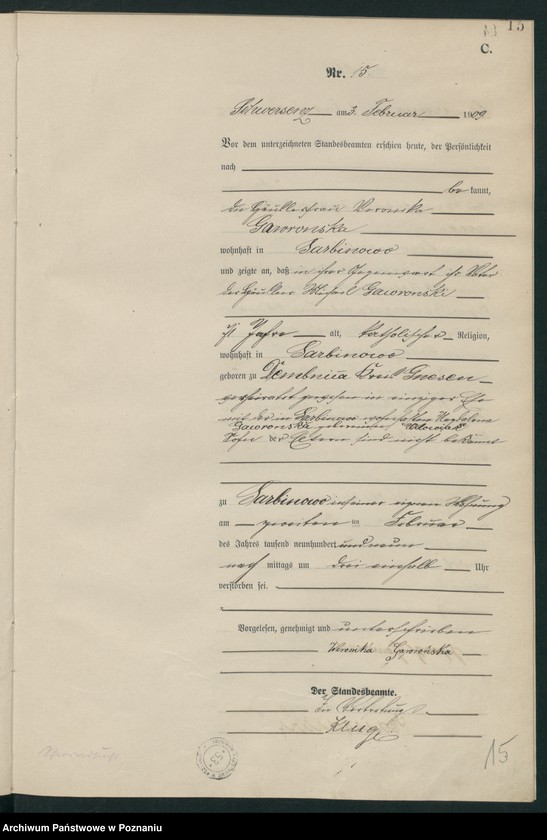 15
C.
Nr. 15
Schwersenz am 3. Februar 1909
Vor dem unterzeichneten Standesbeamten erschien heute, der Persönlichkeit
nach
be kannt,
die Häuslerfrau Veronika
Gaworonska
wohnhaft in Sarbinowo
und zeigte an, daß in ihrer Gegenwart ihr Vater
der Häusler Michael Gaworonski
Jahre alt, katholischer Religion,
wohnhaft in Sarbinowo
geboren zu Dembnica Kreis Gnesen
verheiratet gewesen in einziger Ehe
mit der in Sarbinowo wohnhaften Magdalena
Gaworonska geborenen
Sohn der Eltern sind nicht bekannt
zu Sarbinowo in seiner eigenen Wohnung
am zweiten im Februar
des Jahres tausend neunhundert und neun
nach mittags um drei einhalb Uhr
verstorben sei.
Vorgelesen, genehmigt und unterschrieben
Weronika Gaworońska
Der Standesbeamte.
In Vertretung
Klug
53
15
Archiwum Państwowe w Poznaniu